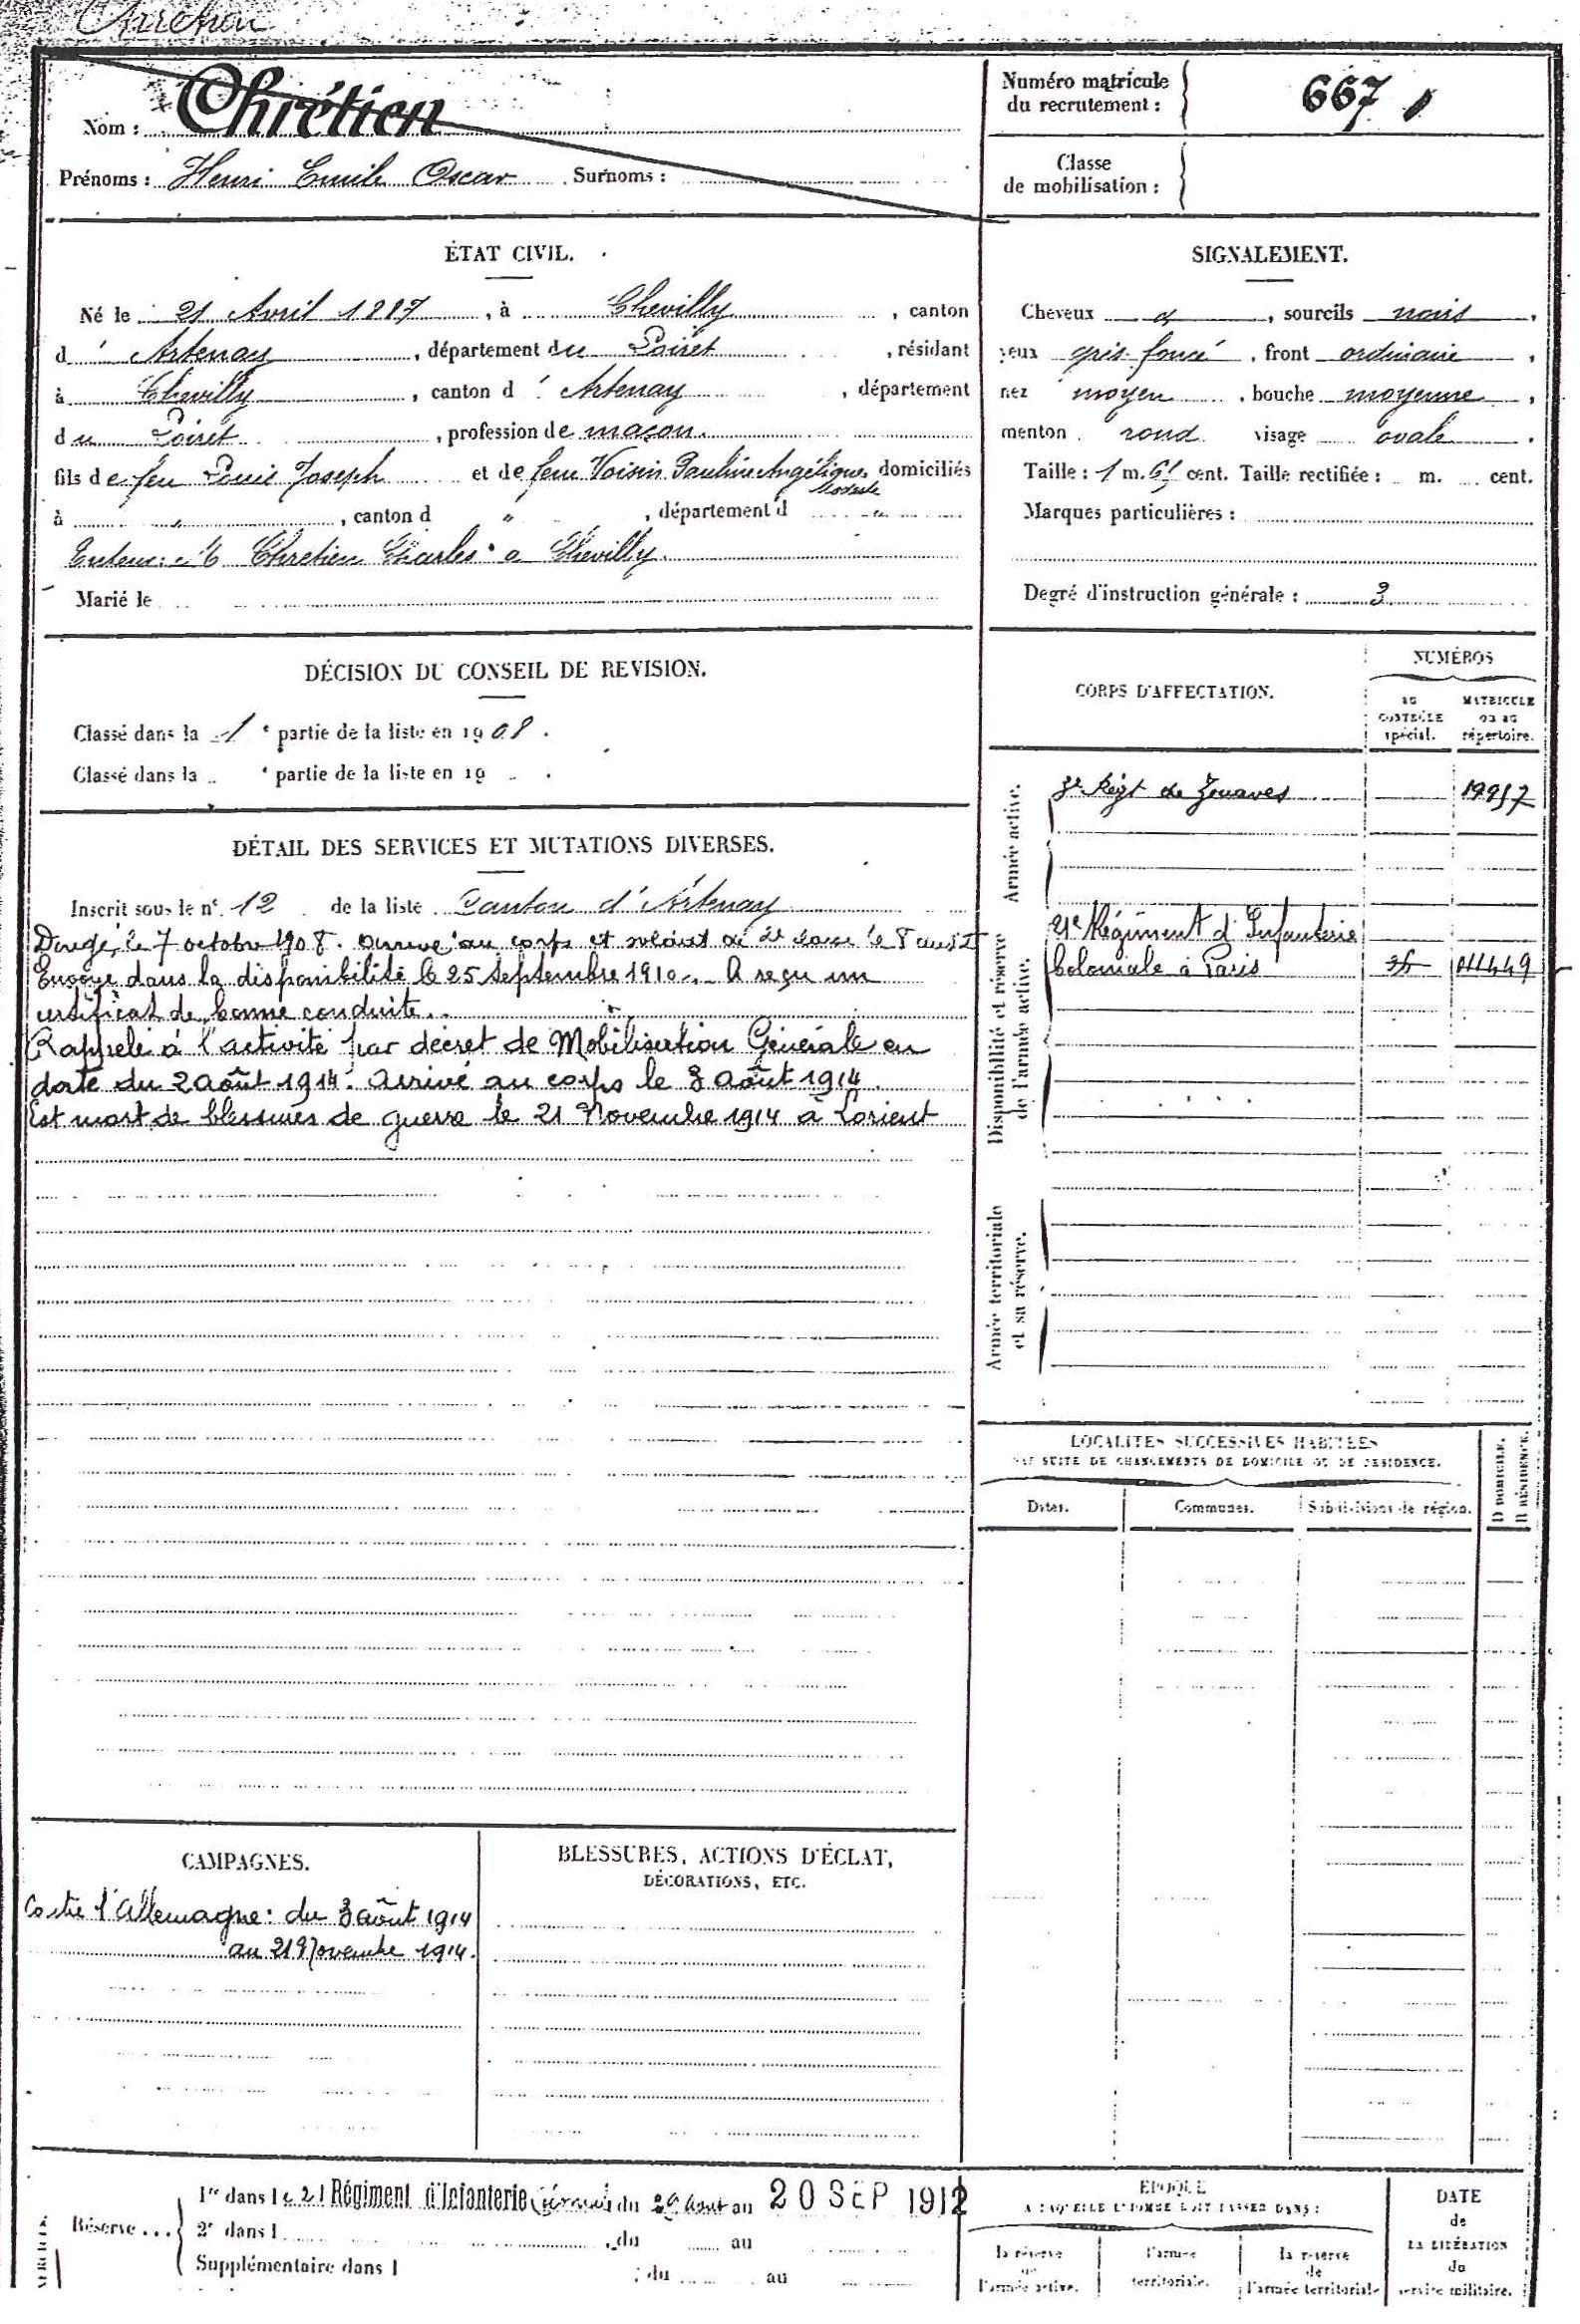 Chrétien
Nom : Chrétien
Prénoms : Henri Emile Oscar Surnoms :
Numéro matricule
du recrutement : 667
Classe
de mobilisation :
ÉTAT CIVIL.
Né le 21 Avril 1887, à Chevilly, canton
d'Artenay, département du Loiret, résidant
à Chevilly, canton d'Artenay, département
du Loiret, profession de maçon
fils de feu Louis Joseph et de feue Voisin Pauline Angélique domiciliés
Modeste
à " , canton d " , département d "
Tuteur : M Chretien Charles à Chevilly
Marié le
SIGNALEMENT.
Cheveux et, sourcils noirs,
yeux gris foncé, front ordinaire,
nez moyen, bouche moyenne,
menton rond visage ovale.
Taille : 1 m. cent. Taille rectifiée : m. cent.
Marques particulières :
Degré d'instruction générale : 3
DÉCISION DU CONSEIL DE REVISION.
Classé dans la 1e partie de la liste en 1908.
Classé dans la e partie de la liste en 19 .
DÉTAIL DES SERVICES ET MUTATIONS DIVERSES.
Inscrit sous le n° 12 de la liste Canton d'Artenay
Dirigé le 7 octobre 1908. Arrivé au corps et soldat de 2e classe le 8 dudit
Envoyé dans la disponibilité le 25 septembre 1910. A reçu un
certificat de bonne conduite.
Rappelé à l'activité par décret de Mobilisation Générale en
date du 2 août 1914. Arrivé au corps le 3 août 1914.
Est mort de blessures de guerre le 21 Novembre 1914 à Lorient
CORPS D'AFFECTATION.
NUMÉROS
AU
CONTRÔLE
spécial.
MATRICULE
OU AU
répertoire.
Armée active.
3e Régt de Zouaves
Disponibilité et réserve
de l'armée active.
21e Régiment d'Infanterie
Coloniale à Paris
Armée territoriale
et sa réserve.
LOCALITÉS SUCCESSIVES HABITÉES
PAR SUITE DE CHANGEMENTS DE DOMICILE OU DE RÉSIDENCE.
Dates.
Communes.
Subdivisions de région.
D DOMICILE.
R RÉSIDENCE.
CAMPAGNES.
Contre l'Allemagne : du 3 août 1914
au 21 Novembre 1914.
BLESSURES, ACTIONS D'ÉCLAT,
DÉCORATIONS, ETC.
Réserve...
1re dans le 21 Régiment d'Infanterie du 29 Août au 20 SEP 1912
2e dans l du au
Supplémentaire dans l du au
ÉPOQUE
À LAQUELLE L'HOMME DOIT PASSER DANS :
la réserve
de
l'armée active.
l'armée
territoriale.
la réserve
de
l'armée territoriale
DATE
de
LA LIBÉRATION
du
service militaire.